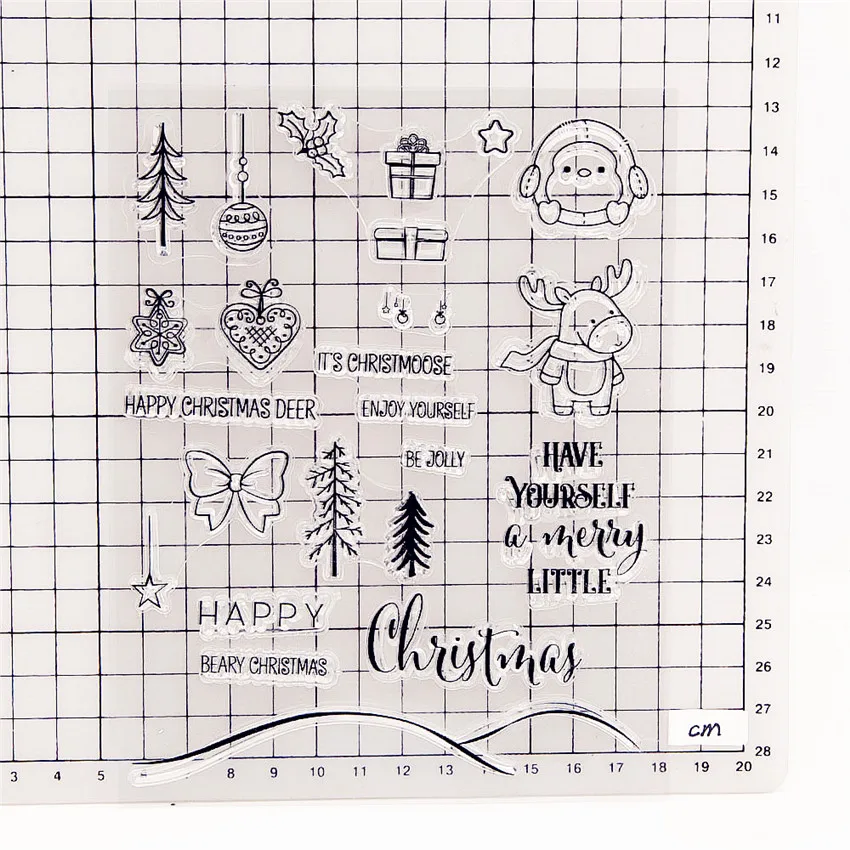 11
12
13
14
15
16
17
18
IT'S CHRISTMOOSE
19
HAPPY CHRISTMAS DEER
ENJOY YOURSELF
20
BE JOLLY
HAVE
21
YOURSELF
22
a merry
23
LITTLE
24
HAPPY
Christmas
25
BEARY CHRISTMAS
26
27
cm
28
3 4 5 8 9 10 11 12 13 14 15 16 17 18 19 20